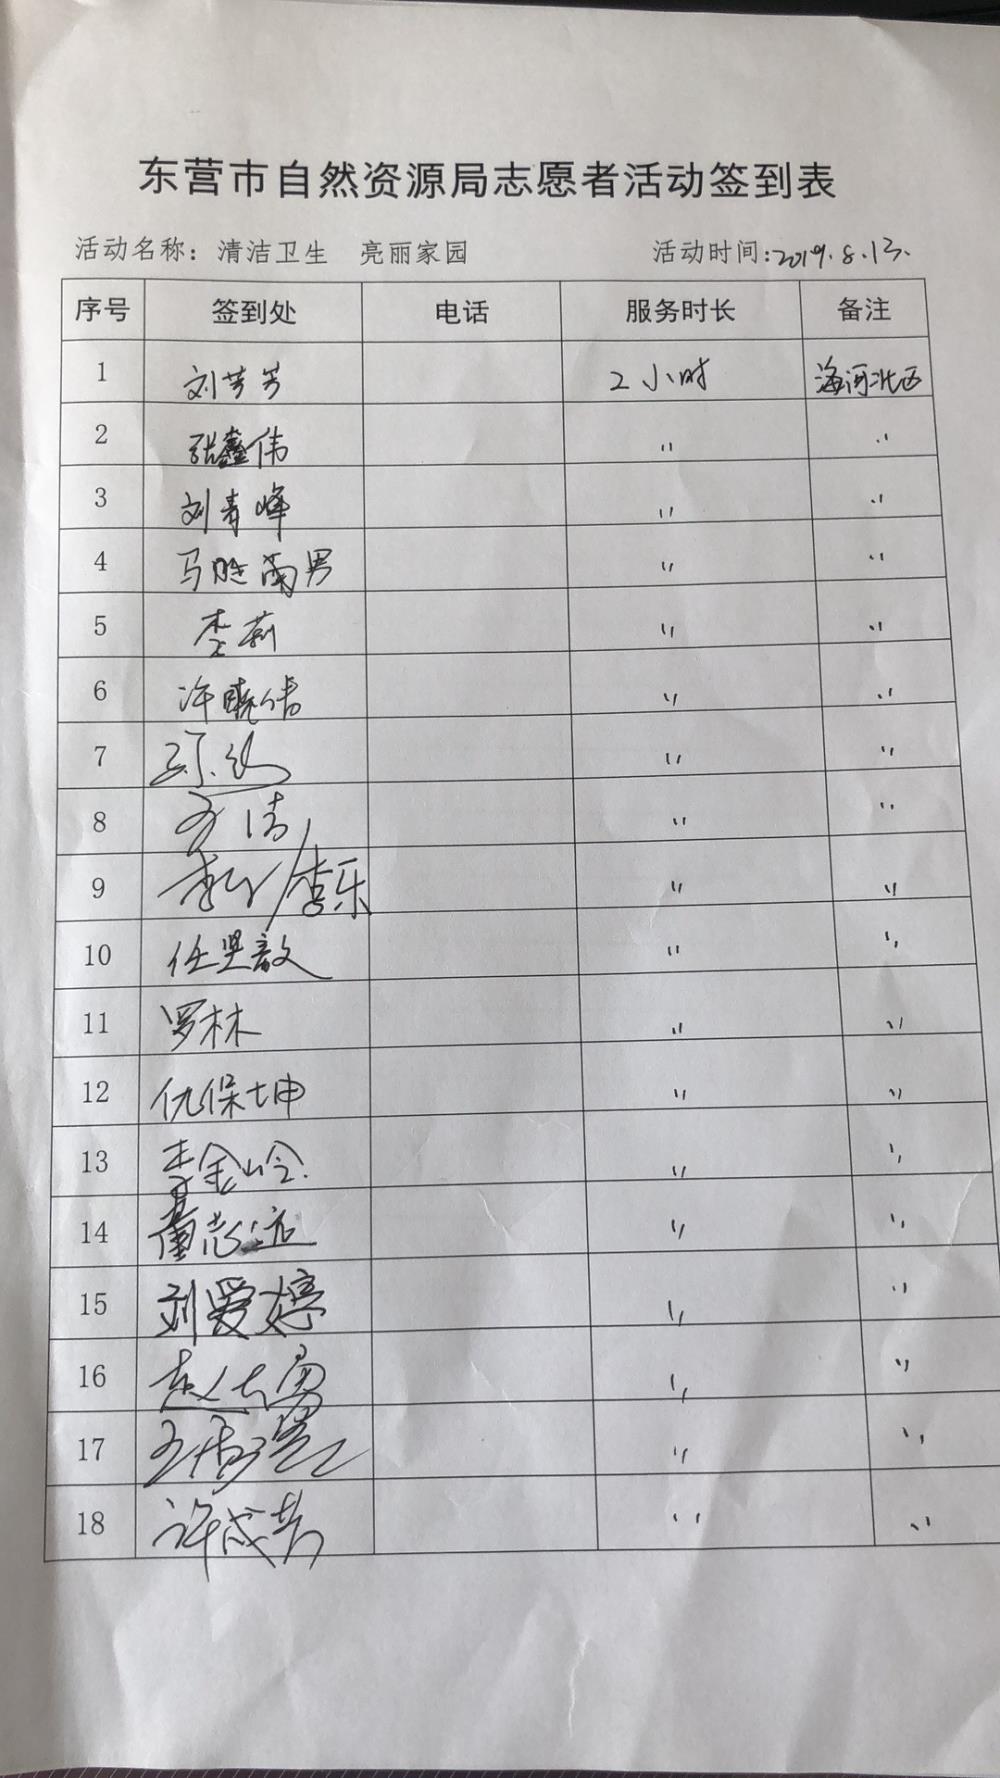 东营市自然资源局志愿者活动签到表
活动名称：清洁卫生 亮丽家园 活动时间:2019.8.13.
序号 签到处 电话 服务时长 备注
1 刘芳芳 2小时 海河北区
2 张鑫伟 〃 〃
3 刘青峰 〃 〃
4 马胜南男 〃 〃
5 李莉 〃 〃
6 许晓倩 〃 〃
7 〃 〃
8 〃 〃
9 李乐 〃 〃
10 任坚毅 〃 〃
11 罗林 〃 〃
12 仇保坤 〃 〃
13 李金岭 〃 〃
14 董志远 〃 〃
15 刘爱婷 〃 〃
16 〃 〃
17 〃 〃
18 许成芳 〃 〃